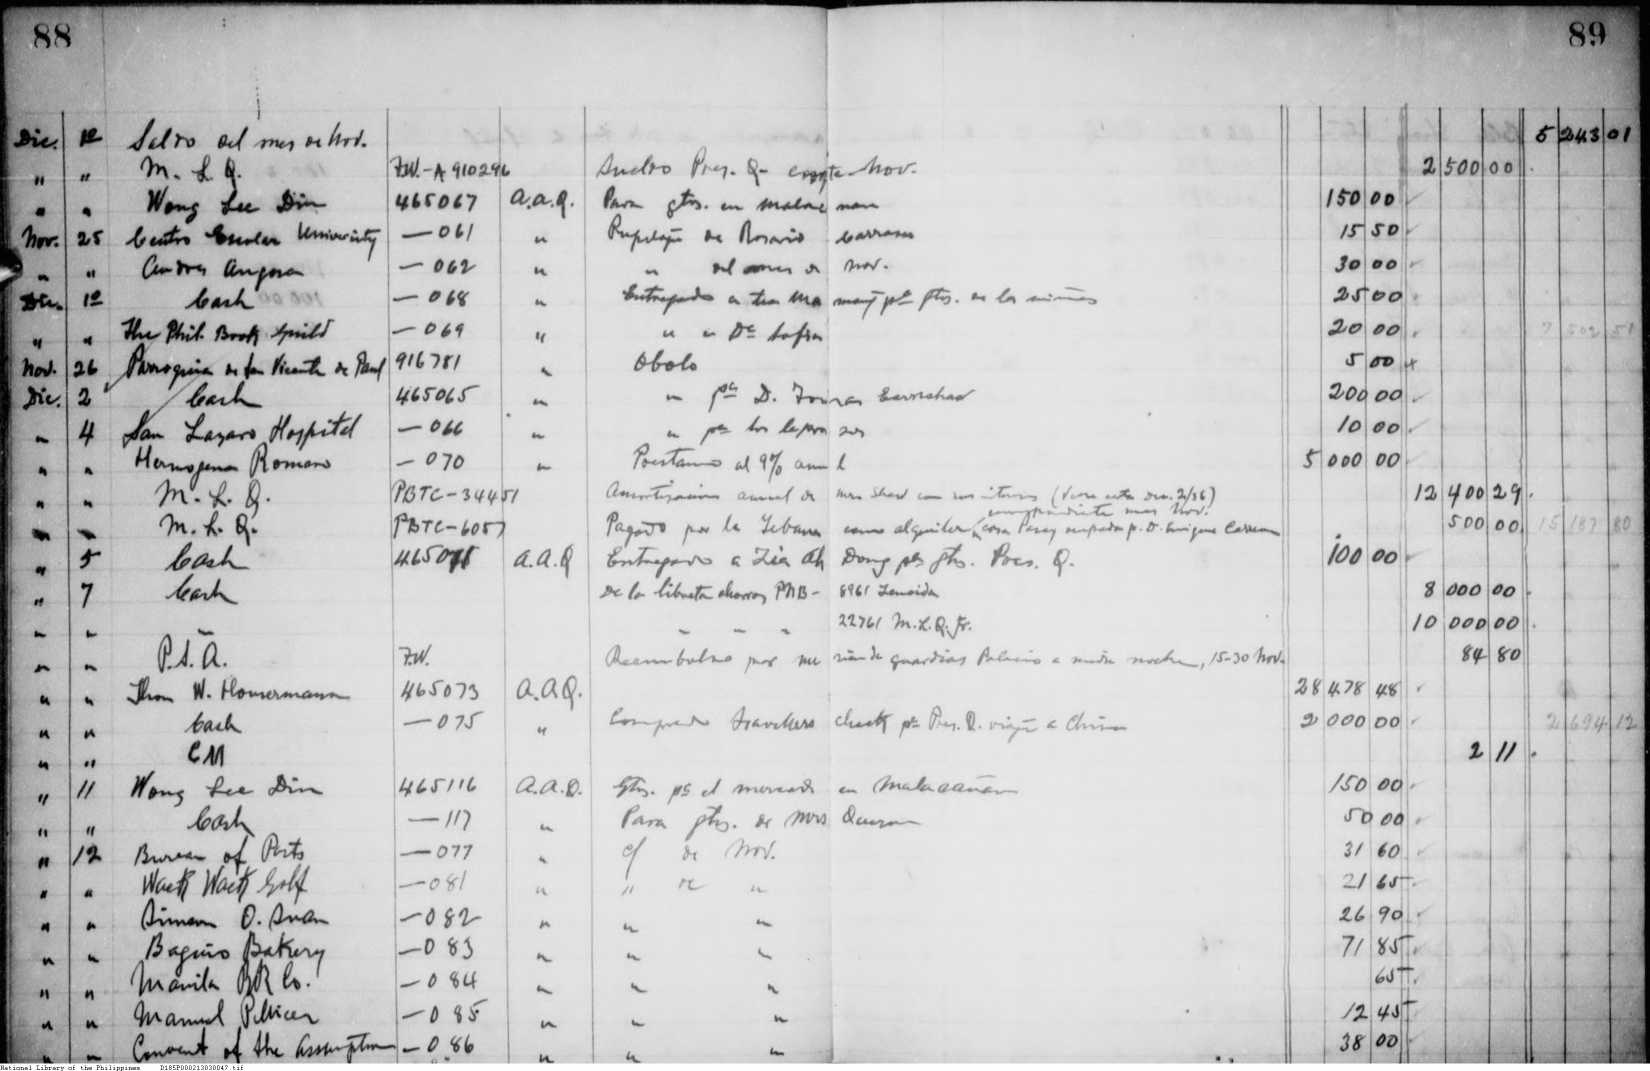 88 89
Dic. 1º Saldo del mes de Nov. 5 243 01
" " M. L. Q. F.W.-A 910296 Sueldo Pres. Q- Nov. 2 500 00
" " Wong Lee Din 465067 A.A.Q. Para gtos. en 150 00
Nov. 25 Centro Escolar University — 061 " Pupilaje de Rosario Carrasco 15 50
" " Andres Angara — 062 " " del mes de Nov. 30 00
Dic. 1º Cash — 068 " Entregado a pª gtos. de las niñas 25 00
" " The Phil. Book Guild — 069 " " " 20 00 7 502 51
Nov. 26 Parroquia de San Vicente de Paul 916781 " Obolo 5 00
Dic. 2 Cash 465065 " " pª D. 200 00
" 4 San Lazaro Hospital — 066 " " pª los leprosos 10 00
" " Romero — 070 " Prestamo al 9% anual 5 000 00
" " M. L. Q. PBTC-34451 Amortizacion anual de con sus intereses 12 400 29
" " M. L. Q. PBTC-6057 Pagado por la como alquiler casa Pasay ocupada p. D. Enrique 500 00 15 187 80
correspondiente mes Nov.
" 5 Cash A.A.Q Entregado a Tia Ah Dong pª gtos. Pres. Q. 100 00
" 7 Cash De la libreta ahorros PNB- 8961 Zenaida 8 000 00
" " " " " " 22761 M.L.Q. Jr. 10 000 00
" " P.S.A. F.W. Reembolso por guardias Palacio a media noche, 15-30 Nov. 84 80
" " 465073 A.A.Q. 28 478 48
" " Cash — 075 " Comprado travelers checks pª Pres. Q. viaje a China 2 000 00 2 694 12
" " CM 2 11
" 11 Wong Lee Din 465116 A.A.Q. Gtos. pª el mercado en Malacañan 150 00
" " Cash — 117 " Para gtos. de Mrs Quezon 50 00
" 12 Bureau of Posts — 077 " c/ de Nov. 31 60
" " Wack Wack Golf — 081 " " de " 21 65
" " — 082 " " " 26 90
" " Baguio Bakery — 083 " " " 71 85
" " Manila RR Co. — 084 " " " 65
" " Manuel Pellicer — 085 " " " 12 45
" " Convent of the Assumption — 086 " " " 38 00
National Library of the Philippines D185P000213030047.tif